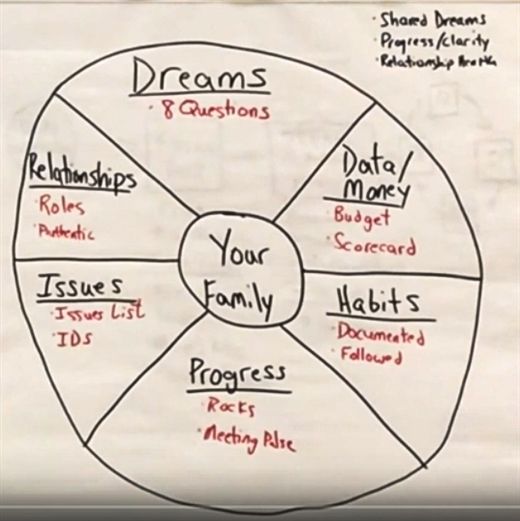 · Shared Dreams
· Progress/Clarity
· Relationship Health
Dreams
· 8 Questions
Relationships
· Roles
· Authentic
Data/
Money
· Budget
· Scorecard
Your
Family
Issues
· Issues List
· IDS
Habits
· Documented
· Followed
Progress
· Rocks
· Meeting Pulse